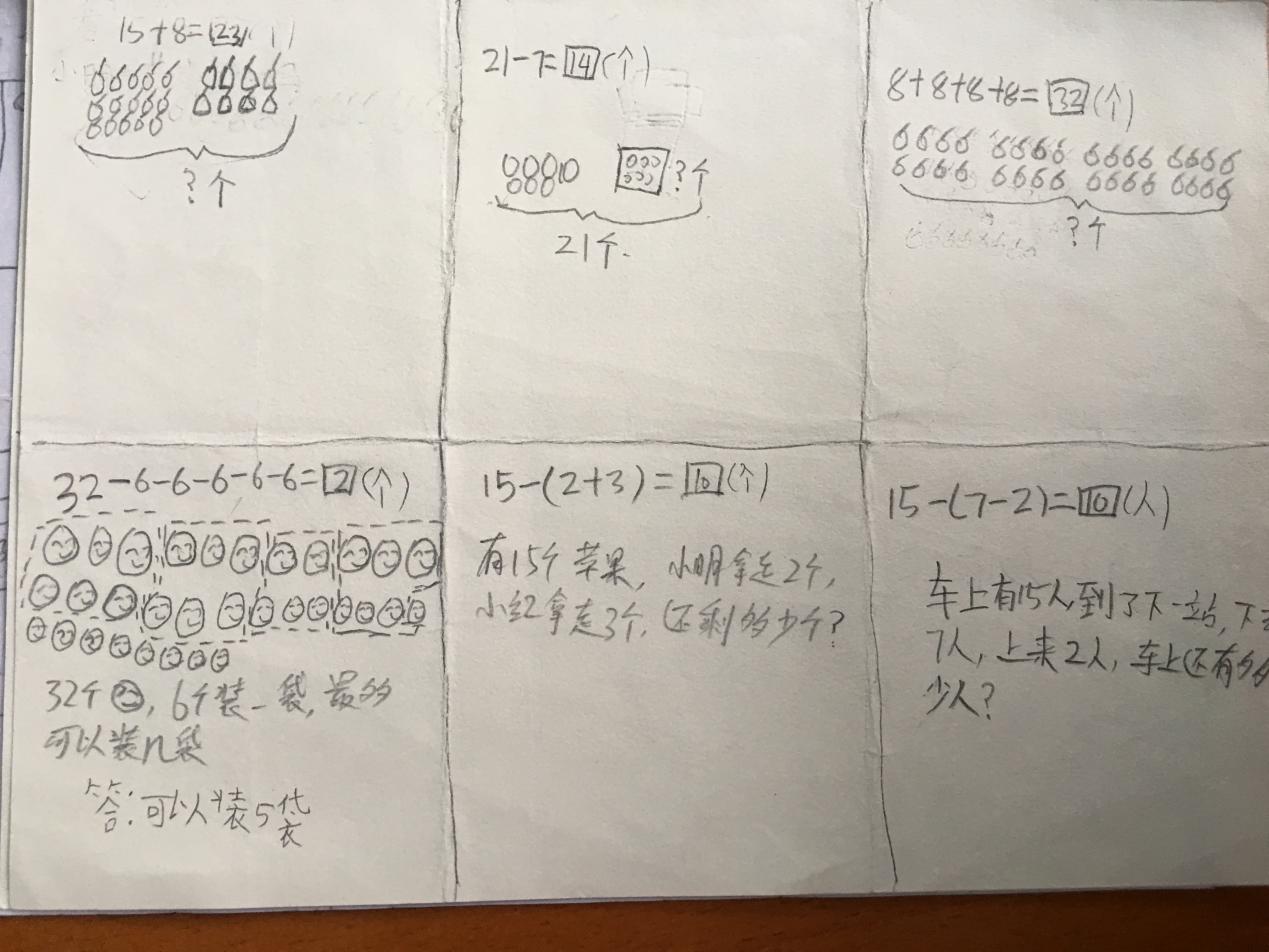 15+8=23
?个
21-7=14(个)
?个
21个.
8+8+8+8=32(个)
?个
32-6-6-6-6-6=2(个)
32个 , 6个装一袋, 最多
可以装几袋
答:可以装5袋
15-(2+3)=10(个)
有15个苹果, 小明拿走2个,
小红拿走3个, 还剩多少个?
15-(7-2)=10(人)
车上有15人,到了下一站,下
7人, 上来2人, 车上还有多
少人?